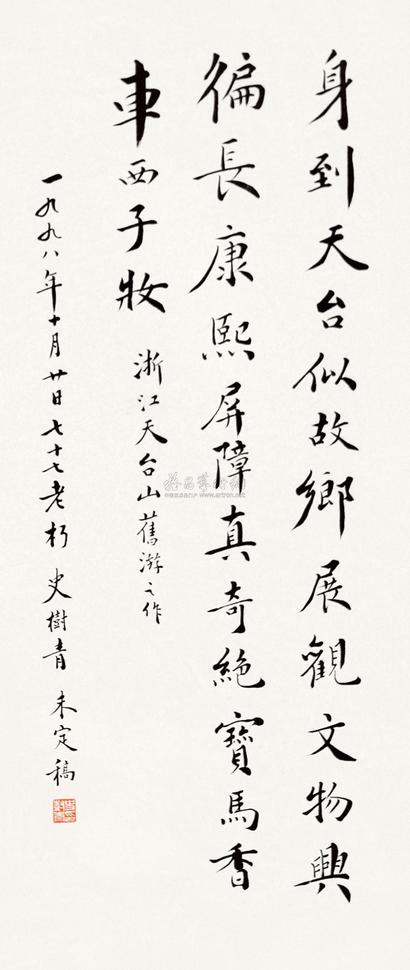 身到天台似故鄉展觀文物興
徧長康熙屏障真奇絶寶馬香
車西子妝 浙江天台山舊游之作
一九九八年十月廿日七十七老朽 史樹青 未定稿